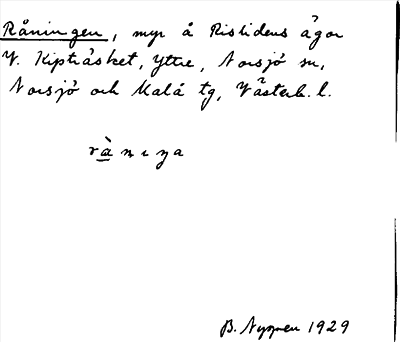 Råningen, myr å Rislidens ägor
V. Kipträsket, Yttre, Norsjö sn,
Norsjö och Malå tg, Västerb. l.
B. Nyman 1929